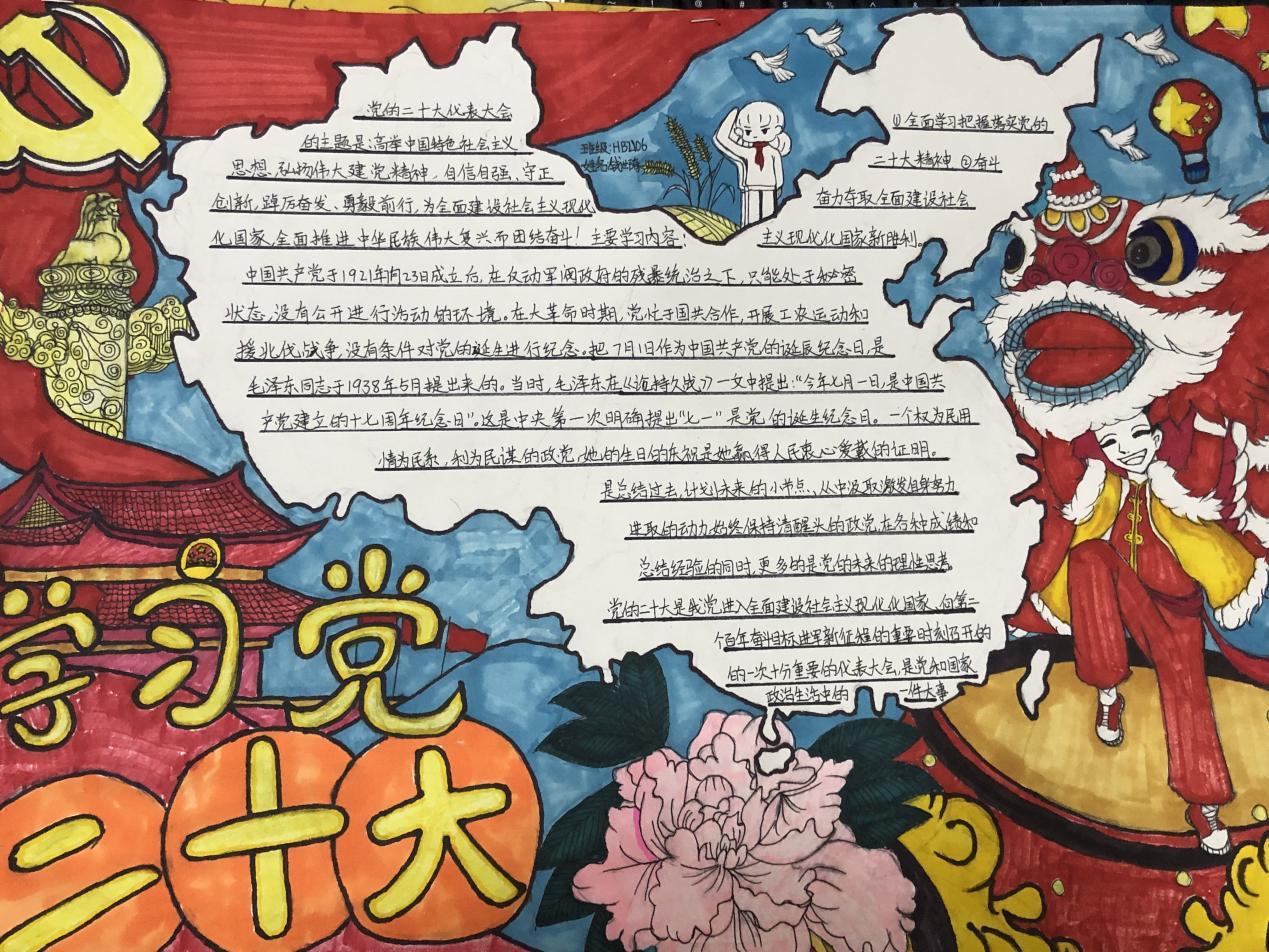 党的二十大代表大会
的主题是:高举中国特色社会主义
思想,弘扬伟大建党精神,自信自强、守正
创新,踔厉奋发、勇毅前行,为全面建设社会主义现代
化国家、全面推进中华民族伟大复兴而团结奋斗!主要学习内容:
班级:HB2106
姓名:
①全面学习把握落实党的
二十大精神 ②奋斗
奋力夺取全面建设社会
主义现代化国家新胜利。
中国共产党于1921年7月23日成立后,在反动军阀政府的残暴统治之下,只能处于秘密
状态,没有公开进行活动的环境。在大革命时期,党忙于国共合作,开展工农运动和
援北伐战争,没有条件对党的诞生进行纪念。把7月1日作为中国共产党的诞辰纪念日,是
毛泽东同志于1938年5月提出来的。当时,毛泽东在《论持久战》一文中提出:“今年七月一日,是中国共
产党建立的十七周年纪念日”。这是中央第一次明确提出“七一”是党的诞生纪念日。一个权为民用
情为民系,利为民谋的政党,她的生日的庆祝是她赢得人民衷心爱戴的证明。
是总结过去,计划未来的小节点、从中汲取激发自身努力
进取的动力始终保持清醒头的政党在各种成绩和
总结经验的同时,更多的是党的未来的理性思考。
党的二十大是我党进入全面建设社会主义现代化国家、向第二
个百年奋斗目标进军新征程的重要时刻召开的
的一次十分重要的代表大会,是党和国家
政治生活中的 一件大事
学习党
二十大